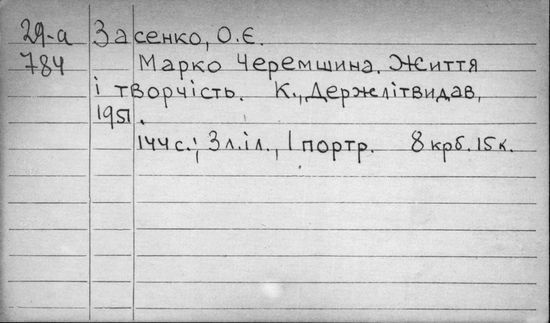 29-а Засенко, О.Є.
784 Марко Черемшина. Життя
і творчість. К., Держлітвидав,
1951.
144 с.; 3 л.іл., 1 портр. 8 крб. 15 к.